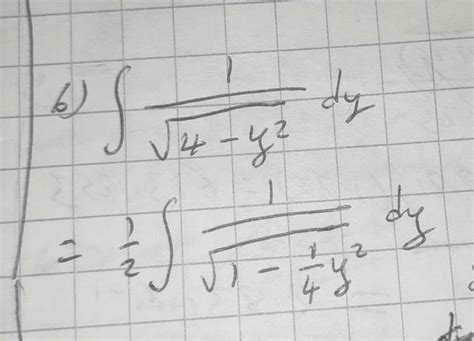 b) ∫ 1/√(4 - y²) dy
= 1/2 ∫ 1/√(1 - 1/4 y²) dy